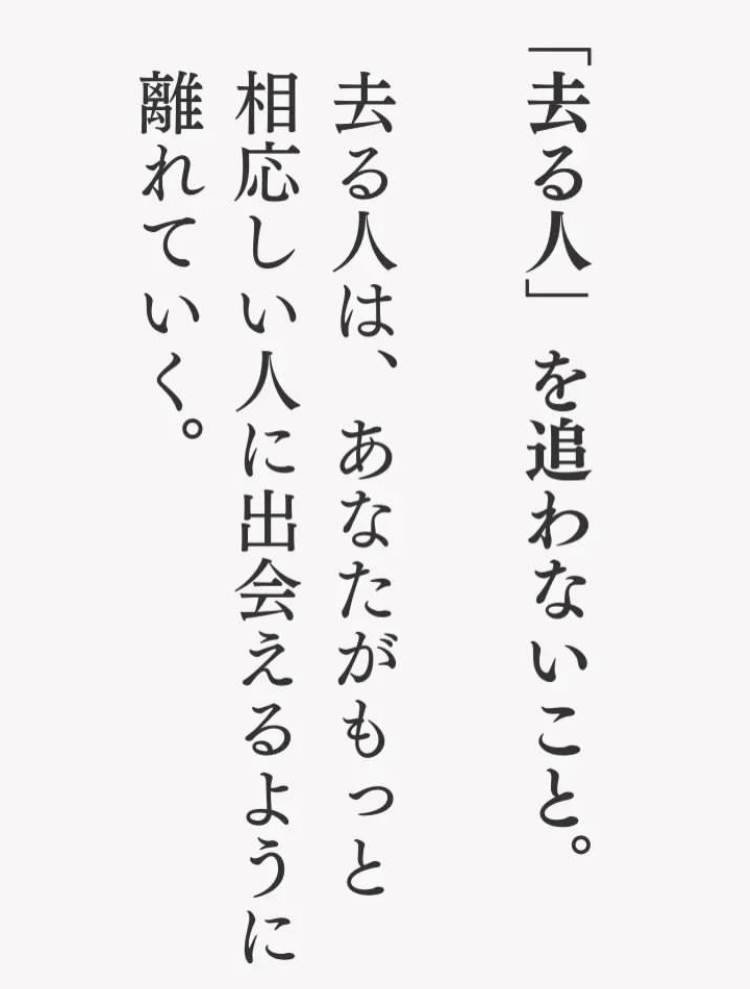 「去る人」を追わないこと。
去る人は、あなたがもっと
相応しい人に出会えるように
離れていく。